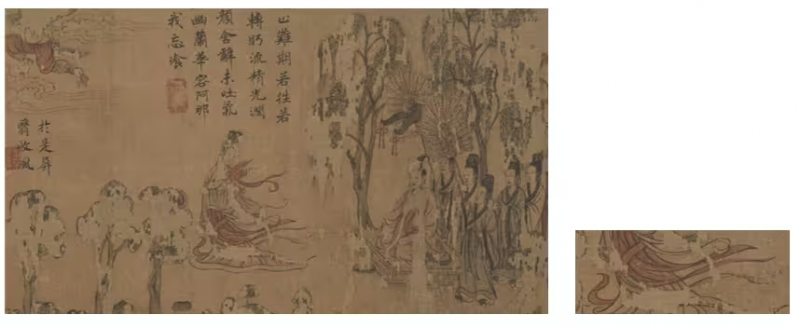 止難期若往若
轉眄流精光潤
顏含辭未吐氣
幽蘭華容阿那
我忘飡
於是屏
翳收風